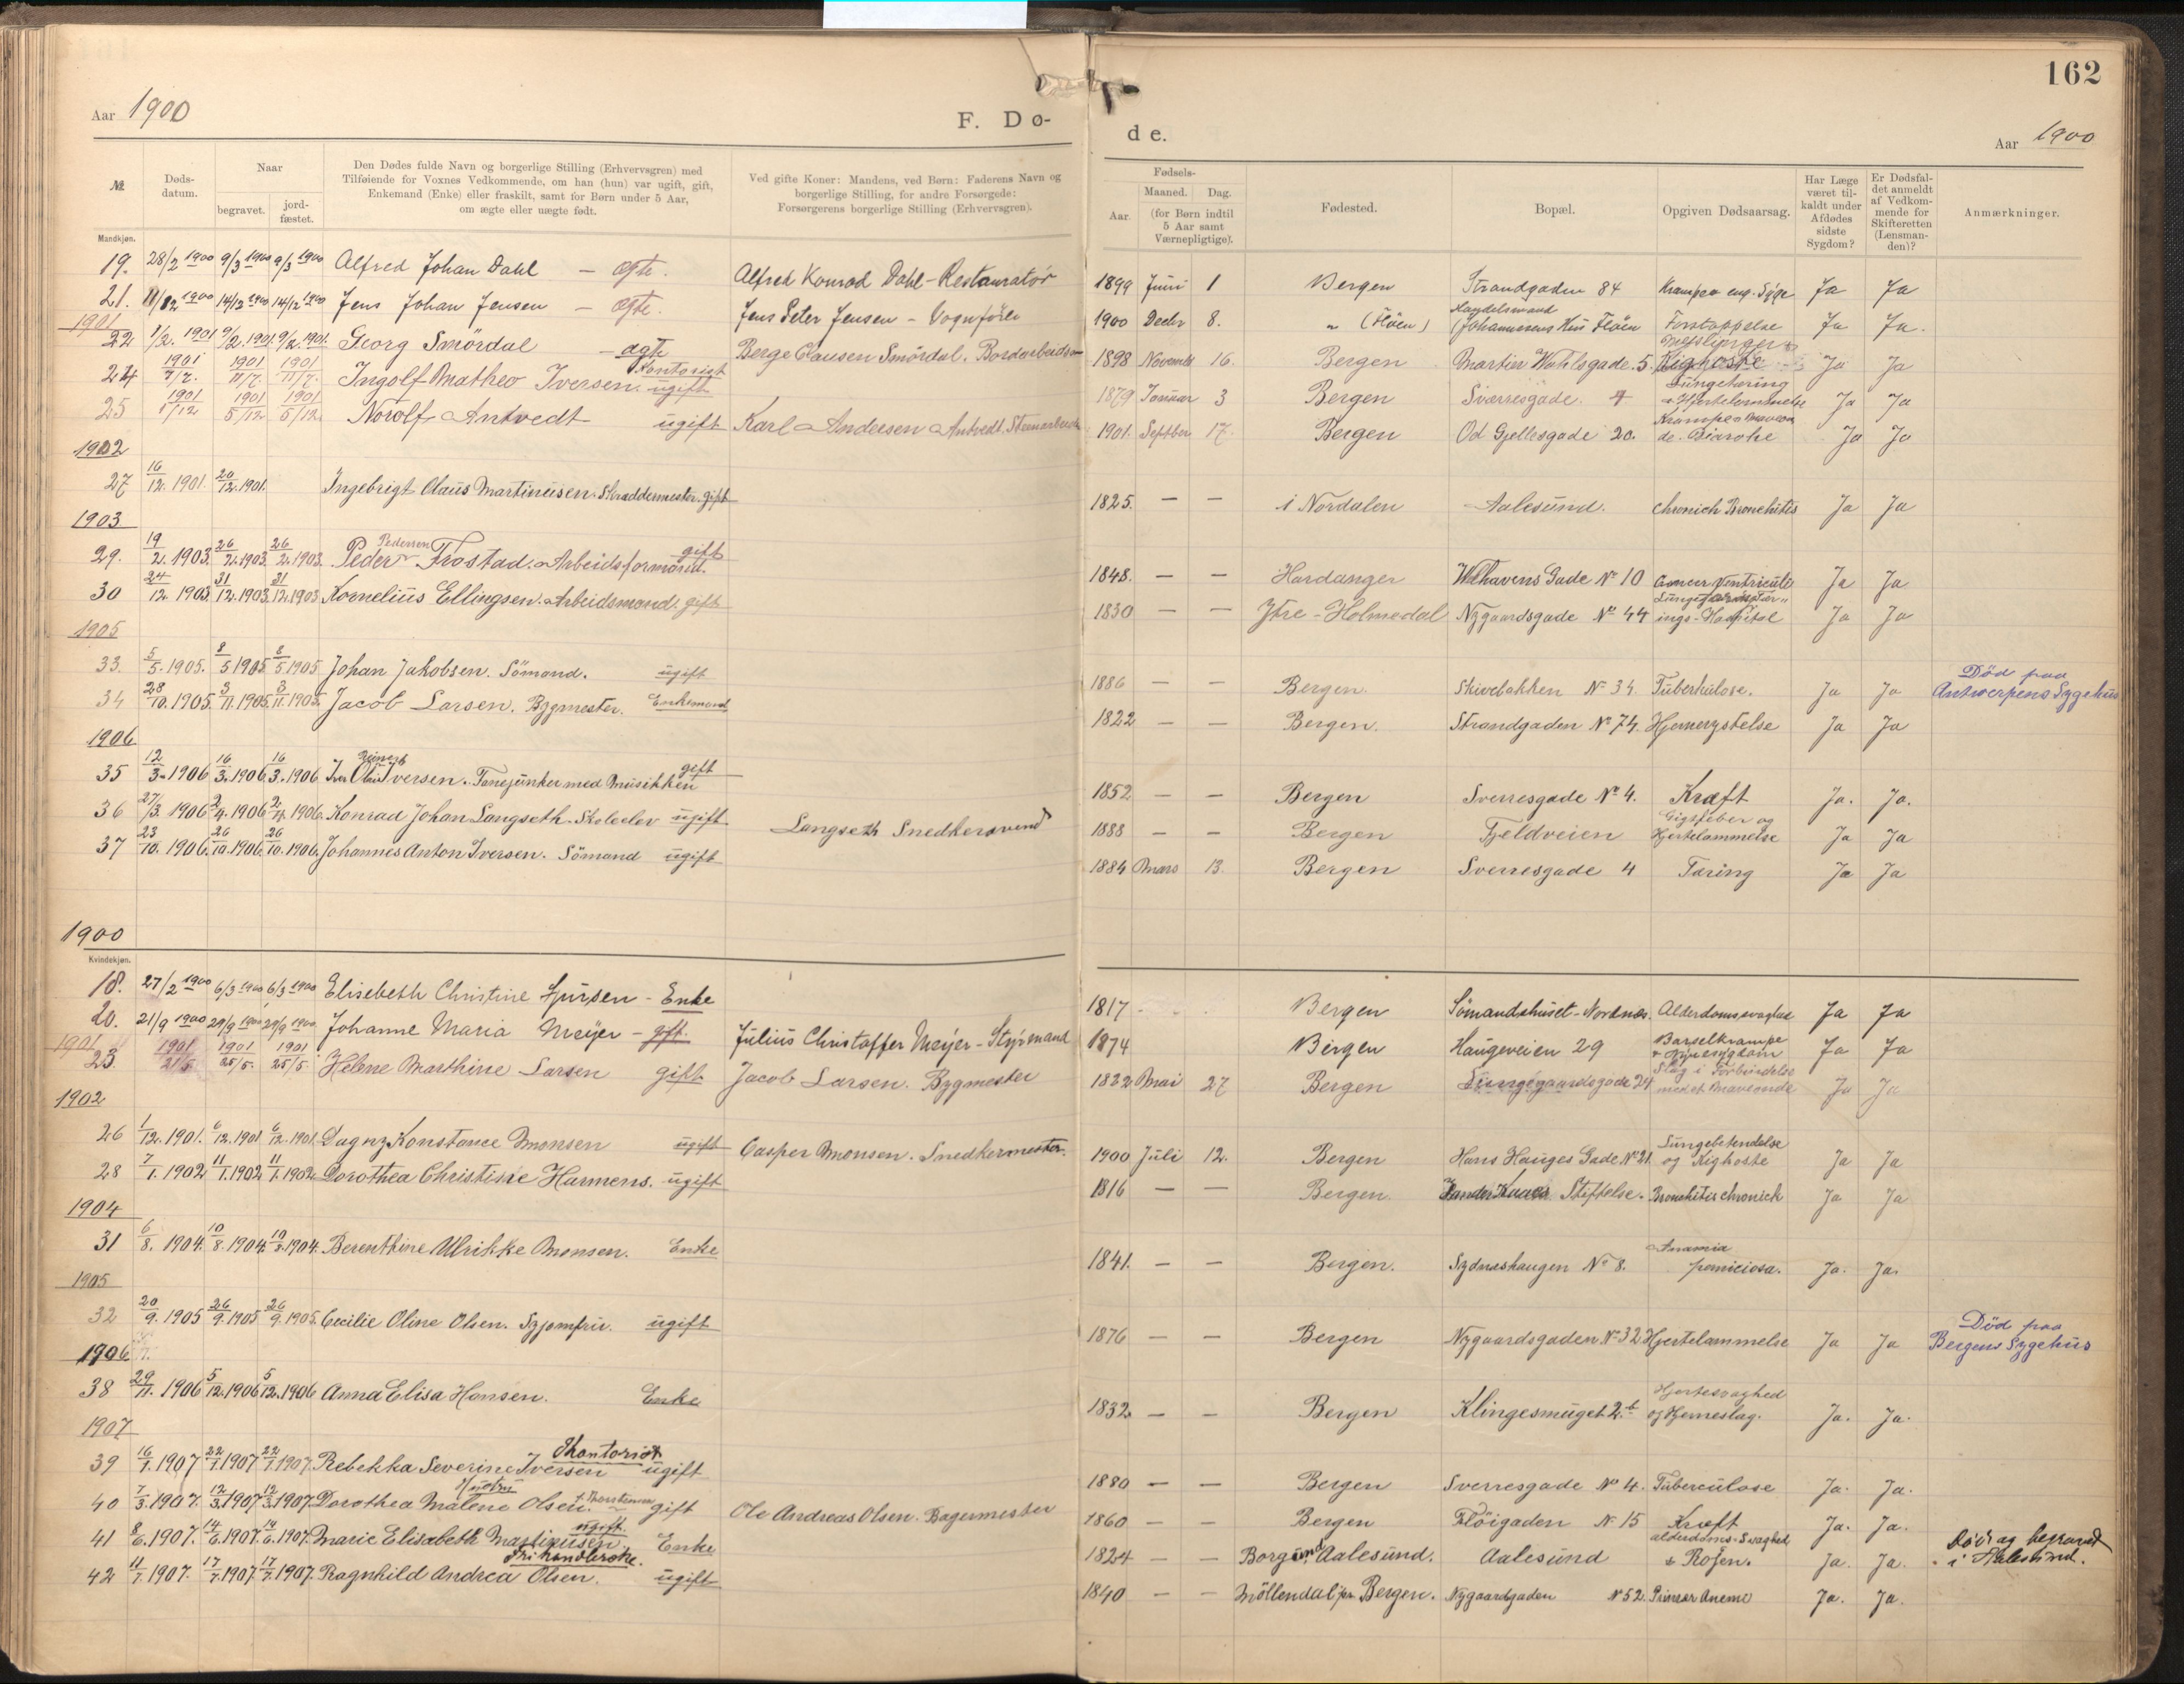 162
Aar 1900
F. Dø-
de.
Aar 1900
№
Døds-
datum.
Naar
begravet.
jord-
fæstet.
Den Dødes fulde Navn og borgerlige Stilling (Erhvervsgren) med
Tilføiende for Voxnes Vedkommende, om han (hun) var ugift, gift,
Enkemand (Enke) eller fraskilt, samt for Børn under 5 Aar,
om ægte eller uægte født.
Ved gifte Koner: Mandens, ved Børn: Faderens Navn og
borgerlige Stilling, for andre Forsørgede:
Forsørgerens borgerlige Stilling (Erhvervsgren).
Fødsels-
Aar.
Maaned.
Dag.
(for Børn indtil
5 Aar samt
Værnepligtige).
Fødested.
Bopæl.
Opgiven Dødsaarsag.
Har Læge
været til-
kaldt under
Afdødes
sidste
Sygdom?
Er Dødsfal-
det anmeldt
af Vedkom-
mende for
Skifteretten
(Lensman-
den)?
Anmærkninger.
Mandkjøn.
19. 28/2 1900 9/3 1900 9/3 1900 Alfred Johan Dahl – ægte. Alfred Konrad Dahl – Restauratør 1899 Juni 1 Bergen Strandgaden 84 Ja Ja
21. 11/12 1900 14/12 1900 14/12 1900 Jens Johan Jensen – ægte. Jens Peter Jensen – Vognfører 1900 Decbr 8. " (Fløen) Handelsmand Johannesens Hus Fløen Forstoppelse Ja Ja.
1901
22 1/2. 1901 9/2. 1901 9/2. 1901. Georg Smördal – ægte Berge Clausen Smördal. 1898 Novemb 16. Bergen Martin Wahlsgade. 5. Mefslinger & Kighoste Ja Ja
24 1901 7/7. 1901 11/7. 1901 11/7. Ingolf Matheo Iversen. Kontorist ugift 1879 Januar 3 Bergen Sverresgade. 4 Lungetæring & Hjertelammelse Ja Ja
25 1901 1/12 1901 5/12 1901 5/12. Norolf Antvedt ugift Karl Andersen Antvedt. 1901. Septber 17. Bergen Od Gjellesgade 20. Ja Ja
1902
27 16/12. 1901. 20/12. 1901. Ingebrigt Claus Martinusen. Skraddermester. gift 1825. – – i Nordalen Aalesund. chronich Bronchitis Ja Ja
1903
29. 19/2. 1903. 26/2. 1903. 26/2. 1903. Peder Pedersen Frostad. Arbeidsformand. gift 1848. – – Hardanger Welhavens Gade № 10 Cancer Ventriculi Ja Ja
30 24/12. 1903. 31/12. 1903. 31/12. 1903 Kornelius Ellingsen. Arbeidsmand. gift 1830 – – Ytre-Holmedal Nygaardsgade № 44 Ja Ja
1905
33. 5/5. 1905. 8/5 1905 8/5 1905 Johan Jakobsen. Sömand. ugift 1886 – – Bergen. Skivebakken № 34. Tuberkulose. Ja Ja Död paa Antwerpens Sygehus
34 28/10. 1905. 3/11. 1905. 3/11. 1905. Jacob Larsen. Bygmester. Enkemand 1822 – – Bergen. Strandgaden № 74. Hjernerystelse Ja Ja
1906
35 12/3. 1906 16/3. 1906 16/3. 1906 Iver Olai Iversen. Tonejunker med Musikken gift 1852 – – Bergen Sverresgade № 4. Kræft Ja. Ja.
36 27/3. 1906 2/4. 1906 2/4. 1906. Konrad Johan Langseth. Skoleelev ugift Langseth Snedkersvend 1888 – – Bergen Fjeldveien Gigtfeber og Hjertelammelse Ja Ja
37 23/10. 1906. 26/10. 1906. 26/10. 1906. Johannes Anton Iversen. Sömand ugift 1884 Mars 13. Bergen Sverresgade 4 Tæring Ja Ja
1900
Kvindekjøn.
18. 27/2 1900 6/3 1900 6/3 1900 Elisebeth Christine – Enke 1817 Bergen Sömandshuset – Nordnes. Alderdomssvaghed Ja Ja
20. 21/9 1900 29/9 1900 29/9 1900. Johanne Maria Meÿer – gft. Julius Christoffer Meÿer – Stÿrmand 1874 Bergen Haugeveien 29 Barselkrampe & Nyresygdom Ja Ja
1901
23. 1901 21/5 1901 25/5. 1901 25/5. Helene Marthine Larsen gift Jacob Larsen. Bygmester 1822 Mai 27 Bergen Lungegaardsgade 24 Slag i Forbindelse med et Maveonde Ja Ja
1902
26 1/12. 1901. 6/12. 1901 6/12. 1901. Dagny Konstance Monsen ugift Casper Monsen. Snedkermester. 1900 Juli 12. Bergen Hans Hauges Gade № 21. Lungebetendelse og Kighoste Ja Ja
28 7/1. 1902 11/1. 1902 11/1. 1902. Dorothea Christine Harmens. ugift 1816 – – Bergen Zander Kaaes Stiftelse. Bronchitis chronick Ja Ja
1904
31 6/8. 1904. 10/8. 1904. 10/8. 1904. Berenthine Ulrikke Monsen. Enke 1841. – – Bergen. Sydneshaugen № 8. Anæmia perniciosa. Ja. Ja.
1905
32 20/9. 1905 26/9. 1905 26/9. 1905. Cecilie Oline Olsen. Syjomfru. ugift 1876 – – Bergen Nygaardsgaden № 32 Hjertelammelse Ja Ja Död paa Bergens Sygehus
1906.
38 29/11. 1906 5/12. 1906 5/12. 1906 Anna Elisa Hansen. Enke 1832. – – Bergen Klingesmuget 2.b Hjertesvaghed og Hjerneslag. Ja. Ja.
1907
39 16/1. 1907 22/1. 1907 22/1. 1907. Rebekka Severine Iversen Kontorist ugift 1880 – – Bergen Sverresgade № 4. Tuberculose Ja. Ja.
40 7/3. 1907. 12/3. 1907 12/3. 1907. Dorothea Malene Olsen. f. Thorstensen Hustru gift Ole Andreas Olsen. Bagermester 1860 – – Bergen Flöigaden № 15 Kræft Ja. Ja.
41 8/6. 1907. 14/6. 1907. 14/6. 1907. Marie Elisabeth Martinusen. ugift. Enke 1824 – – Borgund Aalesund. Aalesund alderdoms-Svaghed & Rosen. Ja. Ja. Död og begravet i Aalesund.
42 11/7. 1907. 17/7. 1907. 17/7. 1907. Ragnhild Andrea Olsen. Frihandlerske. ugift 1840 – – Möllendal pr. Bergen. Nygaardgaden № 52. Anemi Ja. Ja.